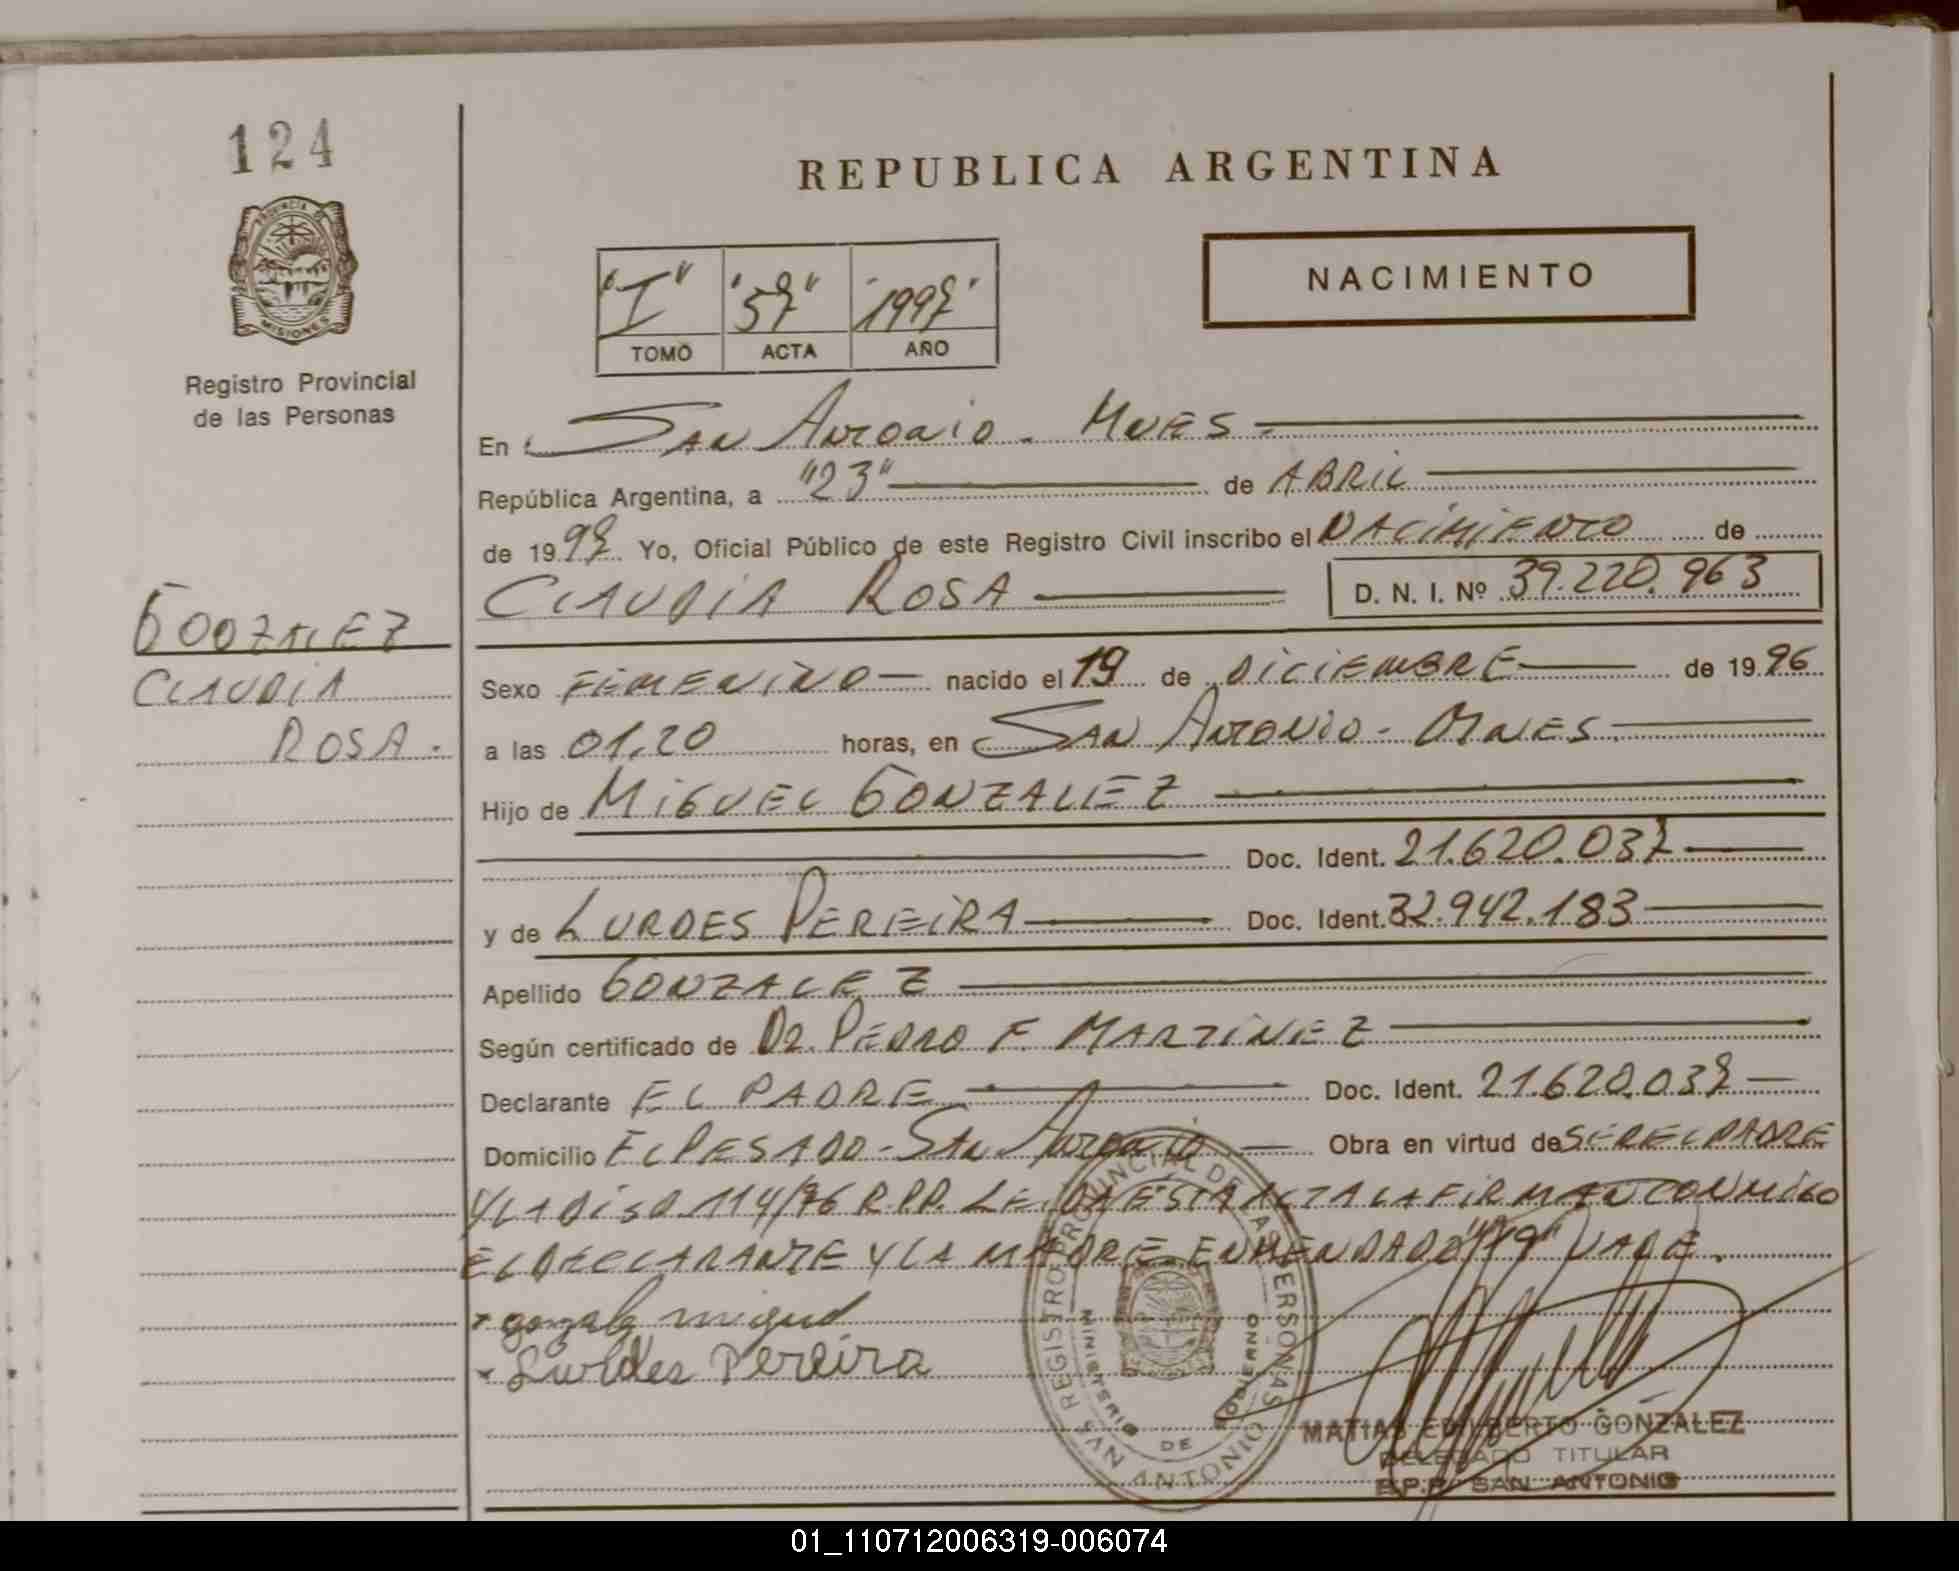 124
REPUBLICA ARGENTINA
PROVINCIA DE
MISIONES
Registro Provincial
de las Personas
"I" "57" "1997"
TOMO ACTA AÑO
NACIMIENTO
En SAN ANTONIO - MNES -
República Argentina, a "23" de ABRIL
de 1997 Yo, Oficial Público de este Registro Civil inscribo el NACIMIENTO de
CLAUDIA ROSA D. N. I. Nº 39.220.963
GONZALEZ
CLAUDIA
ROSA.
Sexo FEMENINO nacido el 19 de DICIEMBRE de 1996
a las 01,20 horas, en SAN ANTONIO - MNES
Hijo de MIGUEL GONZALEZ
Doc. Ident. 21.620.037
y de LURDES PEREIRA Doc. Ident. 32.942.183
Apellido GONZALEZ
Según certificado de DR. PEDRO F. MARTINEZ
Declarante EL PADRE Doc. Ident. 21.620.037
Domicilio EL PESADO - SAN ANTONIO Obra en virtud de SER EL PADRE
Y LA DISO 114/96 R.P.P. LEIDA ESTA ACTA LA FIRMAN CONMIGO
EL DECLARANTE Y LA MADRE. ENMENDADO "19" VALE.
gonzalez miguel
Lurdes Pereira
REGISTRO PROVINCIAL DE LAS PERSONAS
MINISTERIO DE GOBIERNO
SAN ANTONIO
MATIAS EDILBERTO GONZALEZ
DELEGADO TITULAR
R.P.P. SAN ANTONIO
01_110712006319-006074